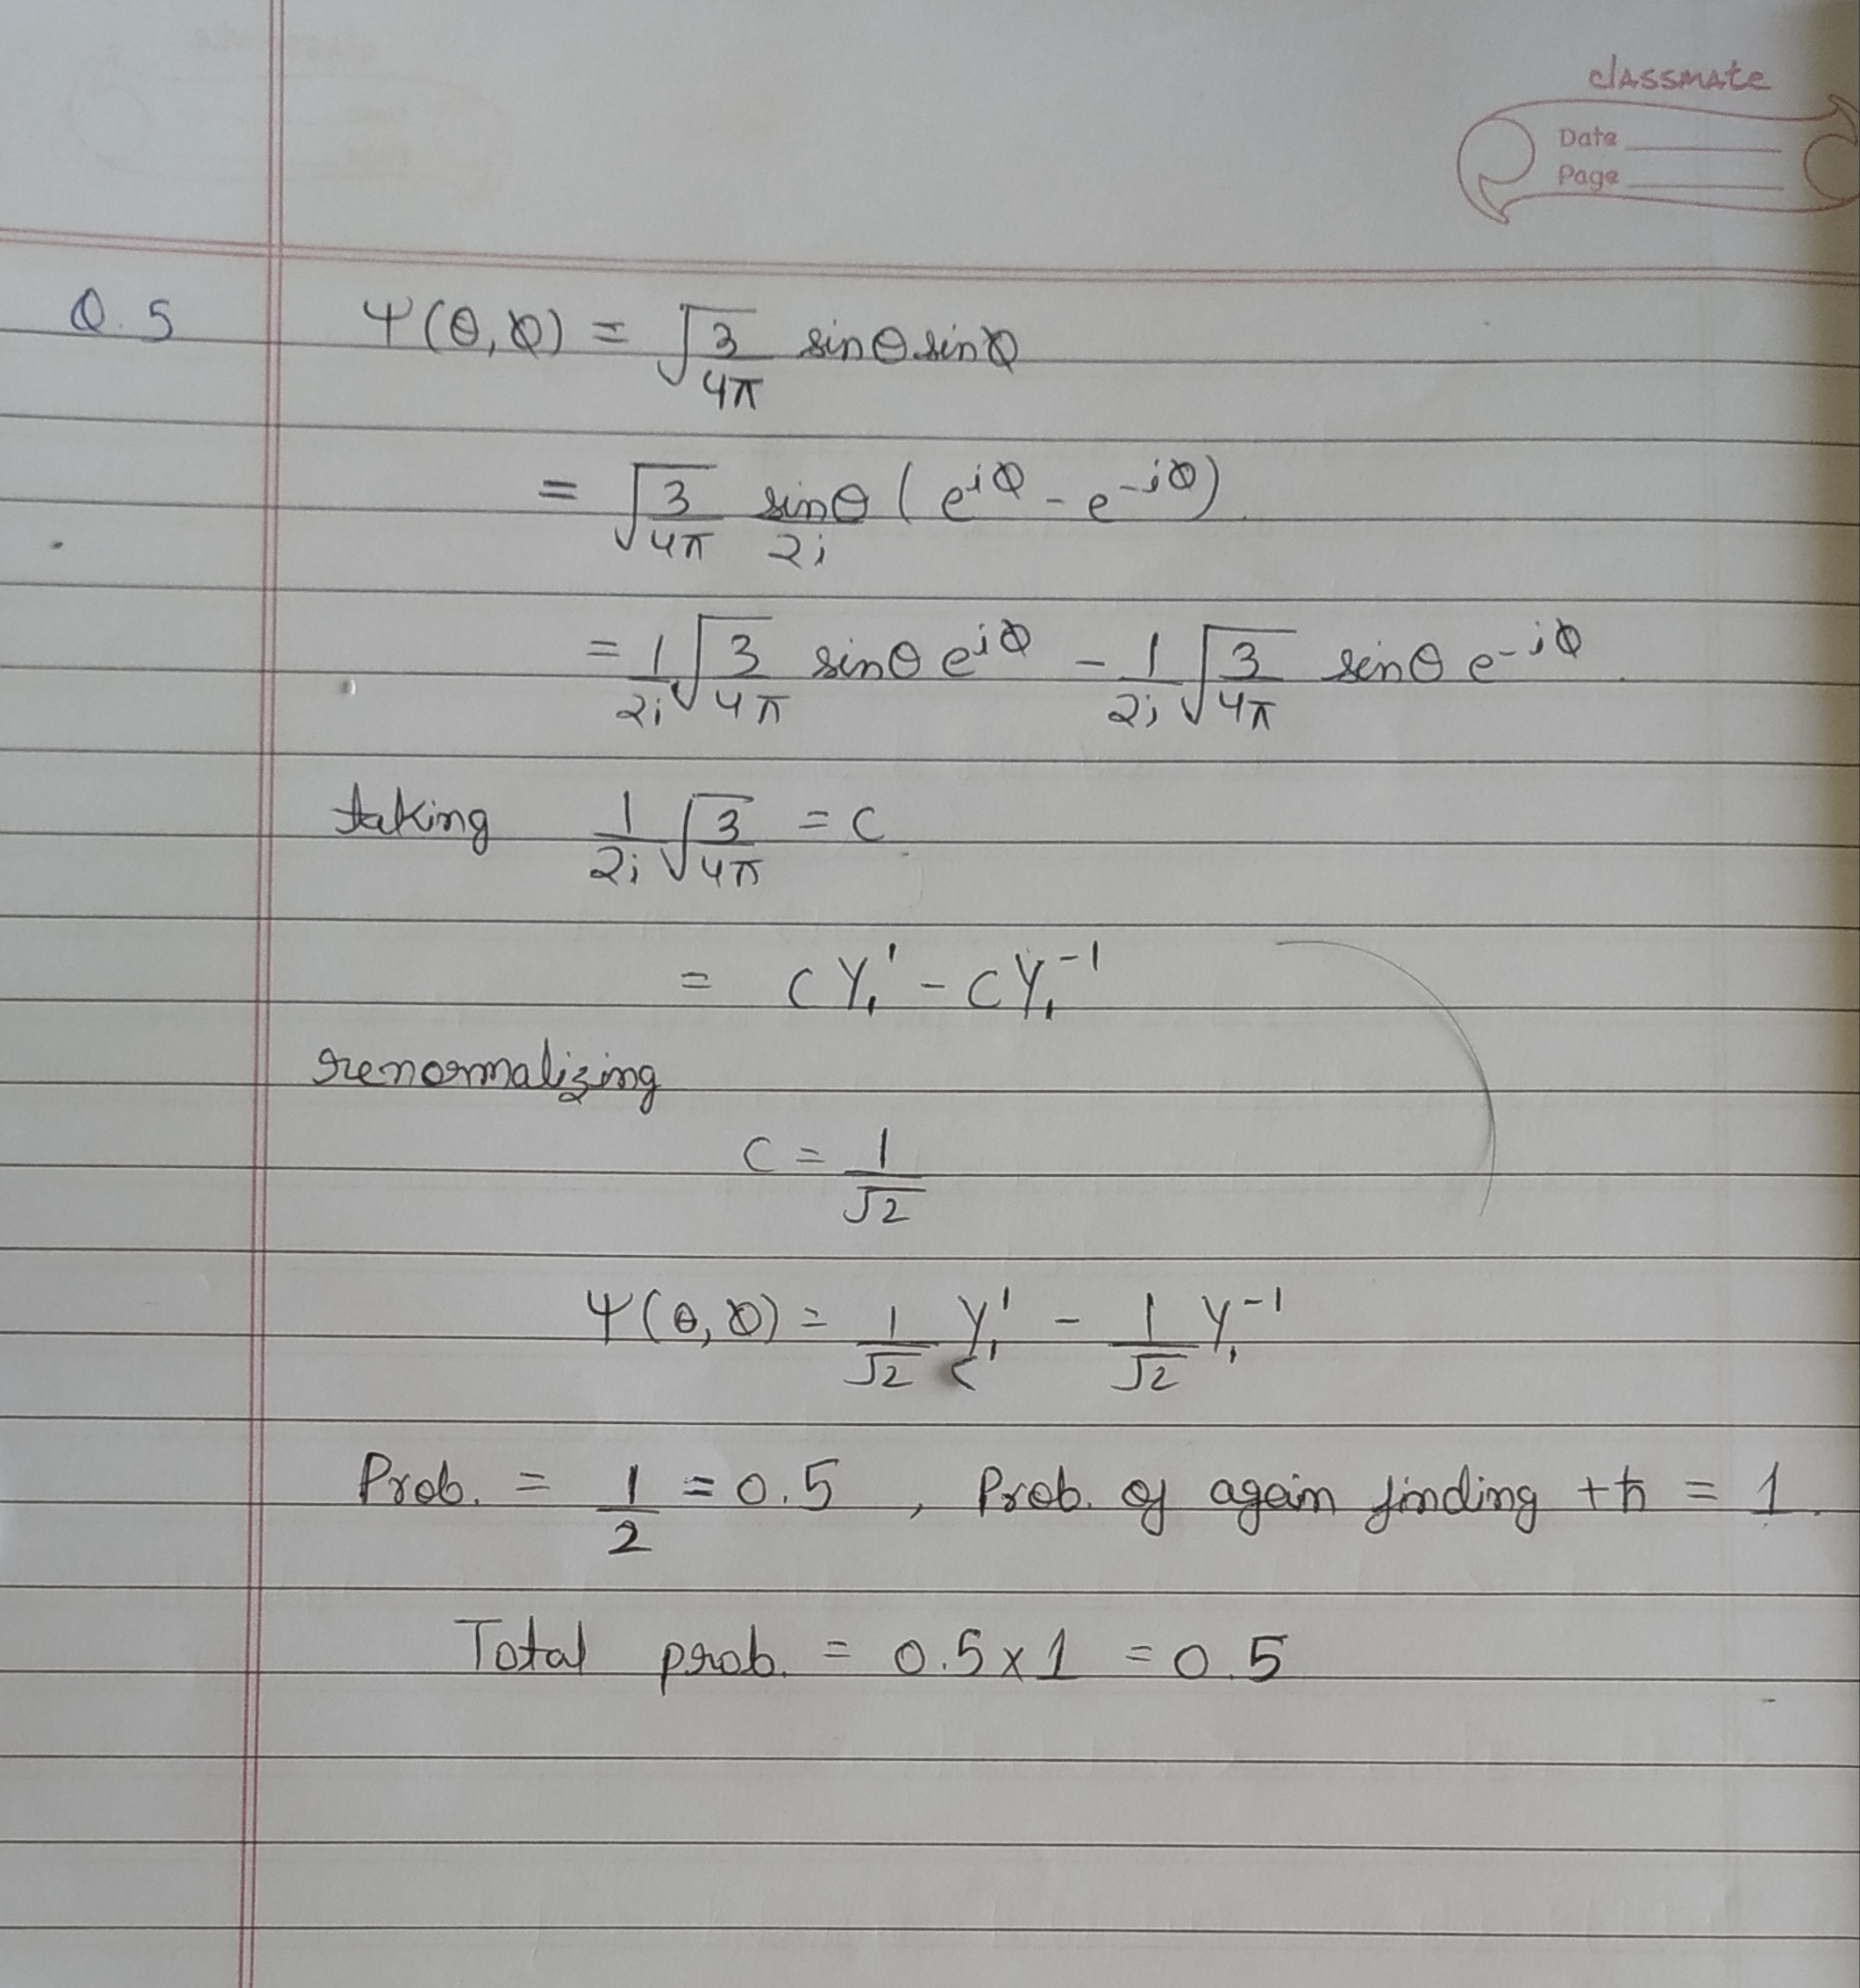 classmate
Date
Page
Q.5 Ψ(θ,φ) = √(3/4π) sinθ sinφ
= √(3/4π) sinθ/2i (e^{iφ} - e^{-iφ})
= 1/2i √(3/4π) sinθ e^{iφ} - 1/2i √(3/4π) sinθ e^{-iφ}
taking 1/2i √(3/4π) = C
= CY₁¹ - CY₁⁻¹
renormalizing
C = 1/√2
Ψ(θ,φ) = 1/√2 Y₁¹ - 1/√2 Y₁⁻¹
Prob. = 1/2 = 0.5 , Prob. of again finding +ħ = 1.
Total prob. = 0.5 x 1 = 0.5